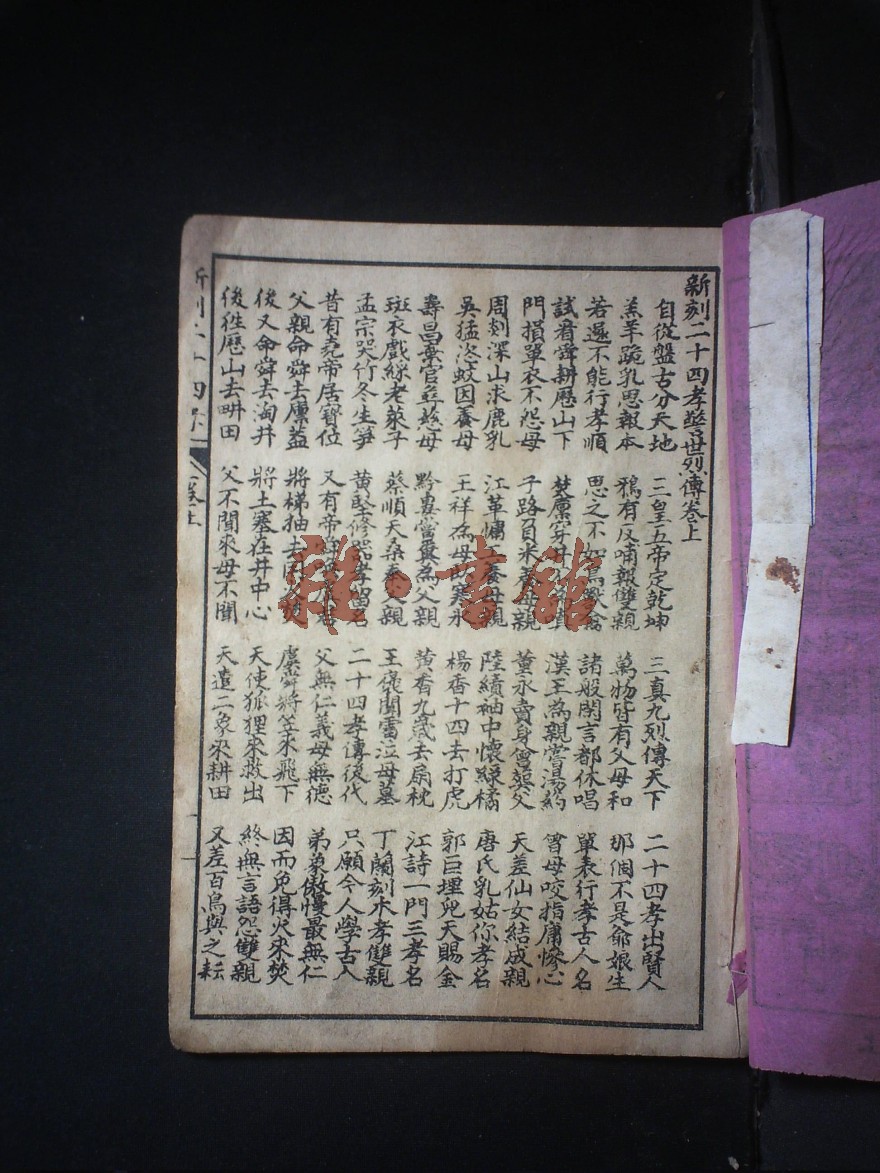 新刻二十四孝警世烈傳卷上
自從盤古分天地 三皇五帝定乾坤 三真九烈傳天下 二十四孝出賢人
羔羊跪乳思報本 鴉有反哺報雙親 萬物皆有父母和 那個不是爺娘生
若還不能行孝順 思之不如為獸禽 諸般閑言都休唱 單表行孝古人名
試看舜耕歷山下 焚廪穿井 漢王為親嘗湯药 曾母咬指痛慘心
門損單衣不怨母 子路負米養母親 董永賣身曾葬父 天差仙女結成親
周剡深山求鹿乳 江革慵工養母親 陸績袖中懷綠橘 唐氏乳姑你孝名
吳猛恣蚊因養母 王祥為母卧寒氷 楊香十四去打虎 郭巨埋兒天賜金
壽昌棄官尋慈母 黔婁當糞為父親 黄香九歲去扇枕 江詩一門三孝名
斑衣戲綵老萊子 蔡順天桑奉父親 王裒聞雷泣母墓 丁蘭刻木孝雙親
孟宗哭竹冬生笋 黄堅修器孝留名 二十四孝傳後代 只願今人學古人
昔有堯帝居寶位 又有帝舜 父無仁義母無德 弟象傲慢最無仁
父親命舜去廪蓋 將梯抽去用火焚 虞舜將笠來飛下 因而免得火來焚
後又命舜去淘井 將土塞在井中心 天使狐狸來救出 終無言語怨雙親
後往歷山去畊田 父不聞來母不聞 天遣二象來耕田 又差百鳥與之耘
新刻二十四孝 卷上
雅·書館